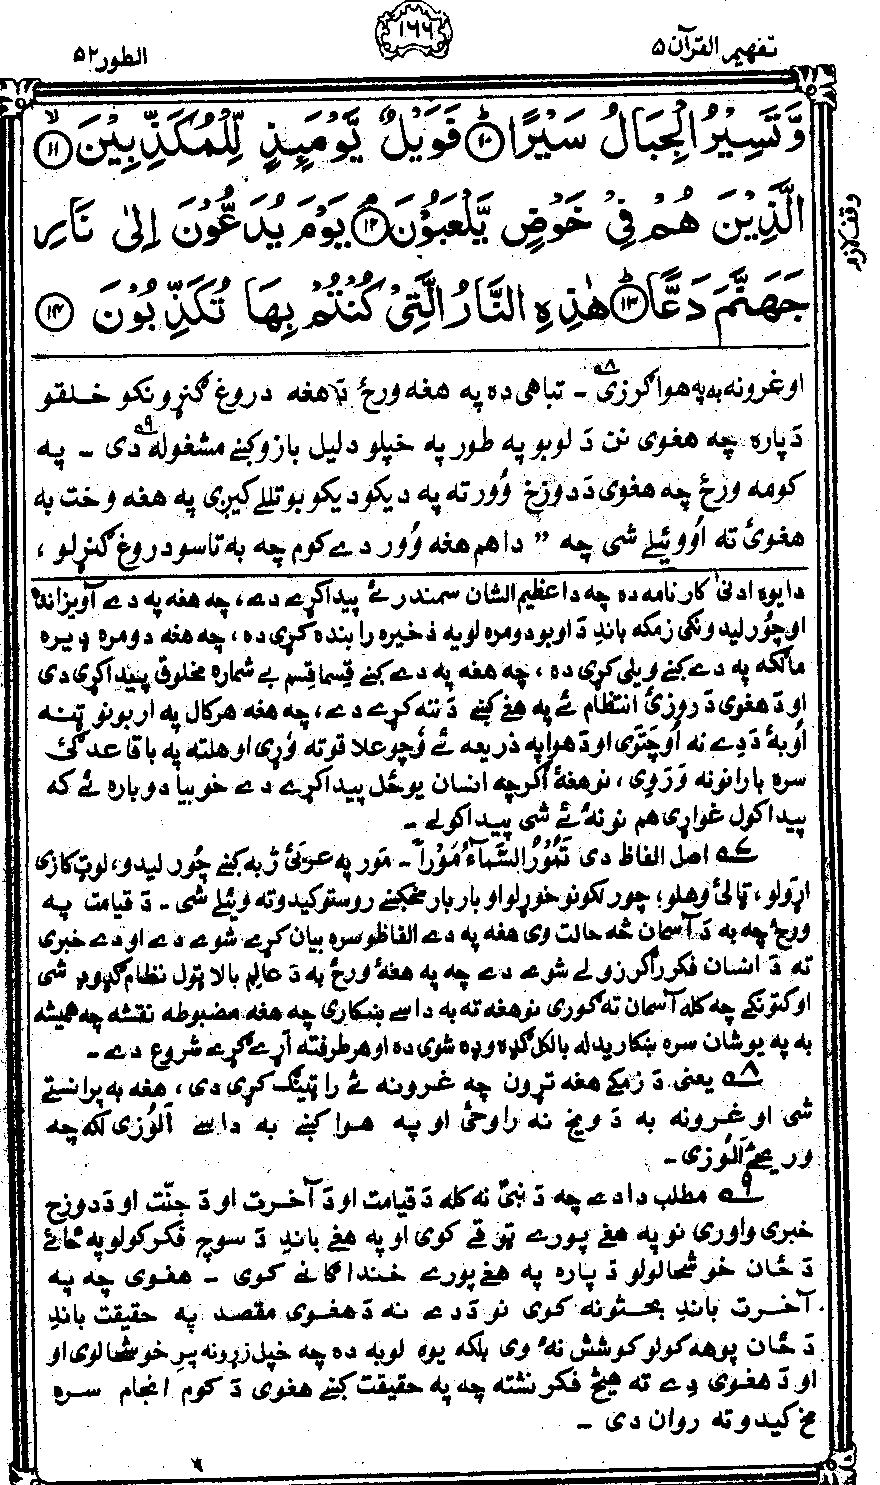 تفهيم القرآن ۵
۱۶۶
الطور ۵۲
وَّتَسِيْرُ الْجِبَالُ سَيْرًا ﴿۱۰﴾ فَوَيْلٌ يَّوْمَىِٕذٍ لِّلْمُكَذِّبِيْنَ ﴿۱۱﴾
الَّذِيْنَ هُمْ فِيْ خَوْضٍ يَّلْعَبُوْنَ ﴿۱۲﴾ يَوْمَ يُدَعُّوْنَ اِلٰى نَارِ
وقف لازم
جَهَنَّمَ دَعًّا ﴿۱۳﴾ هٰذِهِ النَّارُ الَّتِيْ كُنْتُمْ بِهَا تُكَذِّبُوْنَ ﴿۱۴﴾
او غرونه به په هوا ګرزی ۸ـ ـ تباهی ده په هغه ورځ دَ هغه دروغ ګنړونکو خلقو
دَپاره چه هغوی نن دَ لوبو په طور په خپلو دلیل بازو کښے مشغوله ۹ـ دی ـ په
کومه ورځ چه هغوی دَ دوزخ وُور ته په دیکو دیکو بوتللے کیږی په هغه وخت به
هغوئ ته اُووئیلے شی چه ” دا هم هغه وُور دے کوم چه به تاسو دروغ ګنړلو ،
دا یوه ادنیٰ کارنامه ده چه دا عظیم الشان سمندر ئے پیدا کړے دے ، چه هغه په دے آویزاندهٔ
او چُورلیدونکی زمکه باندِ دَ اوبو دومره لویه ذخیره را بنده کړی ده ، چه هغه دومره ډیره
مالګه په دے کښے ویلی کړی ده ، چه هغه په دے کښے قِسما قِسم بے شماره مخلوق پیدا کړی دی
او دَ هغوی دَ روزئ انتظام ئے په هغے کښے دَ ننه کړے دے ، چه هغه هر کال په اربونو ټنه
اُوبهٔ دَ دے نه اُوچتَوی او دَ هوا په ذریعه ئے وُچو علاقو ته وَړی او هلته په باقاعدګئ
سره بارانونه وَرَوِی ، نو هغهٔ اګرچه انسان یو ځل پیدا کړے دے خو بیا دوباره ئے که
پیدا کول غواړی هم نو نهٔ ئے شی پیدا کولے ـ
۷ـ اصل الفاظ دی تَمُوْرُ السَّمَآءُ مَوْراً ـ مَور په عربئ ژبه کښے چُورلیدو ، لوټ کازی
اړَولو ، ټالئ وهلو ، چورلکونو خوړلو او بار بار مخکښے روستو کیدو ته وئیلے شی ـ دَ قیامت په
ورځ چه به دَ آسمان څه حالت وی هغه په دے الفاظو سره بیان کړے شوے دے او دے خبری
ته دَ انسان فکر را ګرزولے شوے دے چه په هغهٔ ورځ به دَ عالمِ بالا ټول نظام ګډوډ شی
او کتونکے چه کله آسمان ته ګوری نو هغه ته به داسے ښکاری چه هغه مضبوطه نقشه چه همیشه
به په یو شان سره ښکاریدله بالکل ګډه وډه شوی ده او هر طرف ته آرے ګرے شروع دے ـ
۸ـ یعنی دَ زمکے هغه تړون چه غرونه ئے را ټینګ کړی دی ، هغه به پرانستے
شی او غرونه به دَ ویخ نه راوځی او په هوا کښے به داسے اَلوُزی لکه چه
وریځے اَلوُزی ـ
۹ـ مطلب دا دے چه دَ نبیؐ نه کله دَ قیامت او دَ آخرت او دَ جنّت او دَ دوزخ
خبری واوری نو په هغے پورے ټوقے کوی او په هغے باندِ دَ سوچ فکر کولو په ځائے
دَ ځان خوشحالولو دَ پاره په هغے پورے خندا ګانے کوی ـ هغوی چه په
آخرت باندِ بحثونه کوی نو دَ دے نه دَ هغوی مقصد په حقیقت باندِ
دَ ځان پوهه کولو کوشش نهٔ وی بلکه یوه لوبه ده چه خپل زړونه پرِ خوشحالوی او
او دَ هغوی دے ته هیڅ فکر نشته چه په حقیقت کښے هغوی دَ کوم انجام سره
مخ کیدو ته روان دی ـ